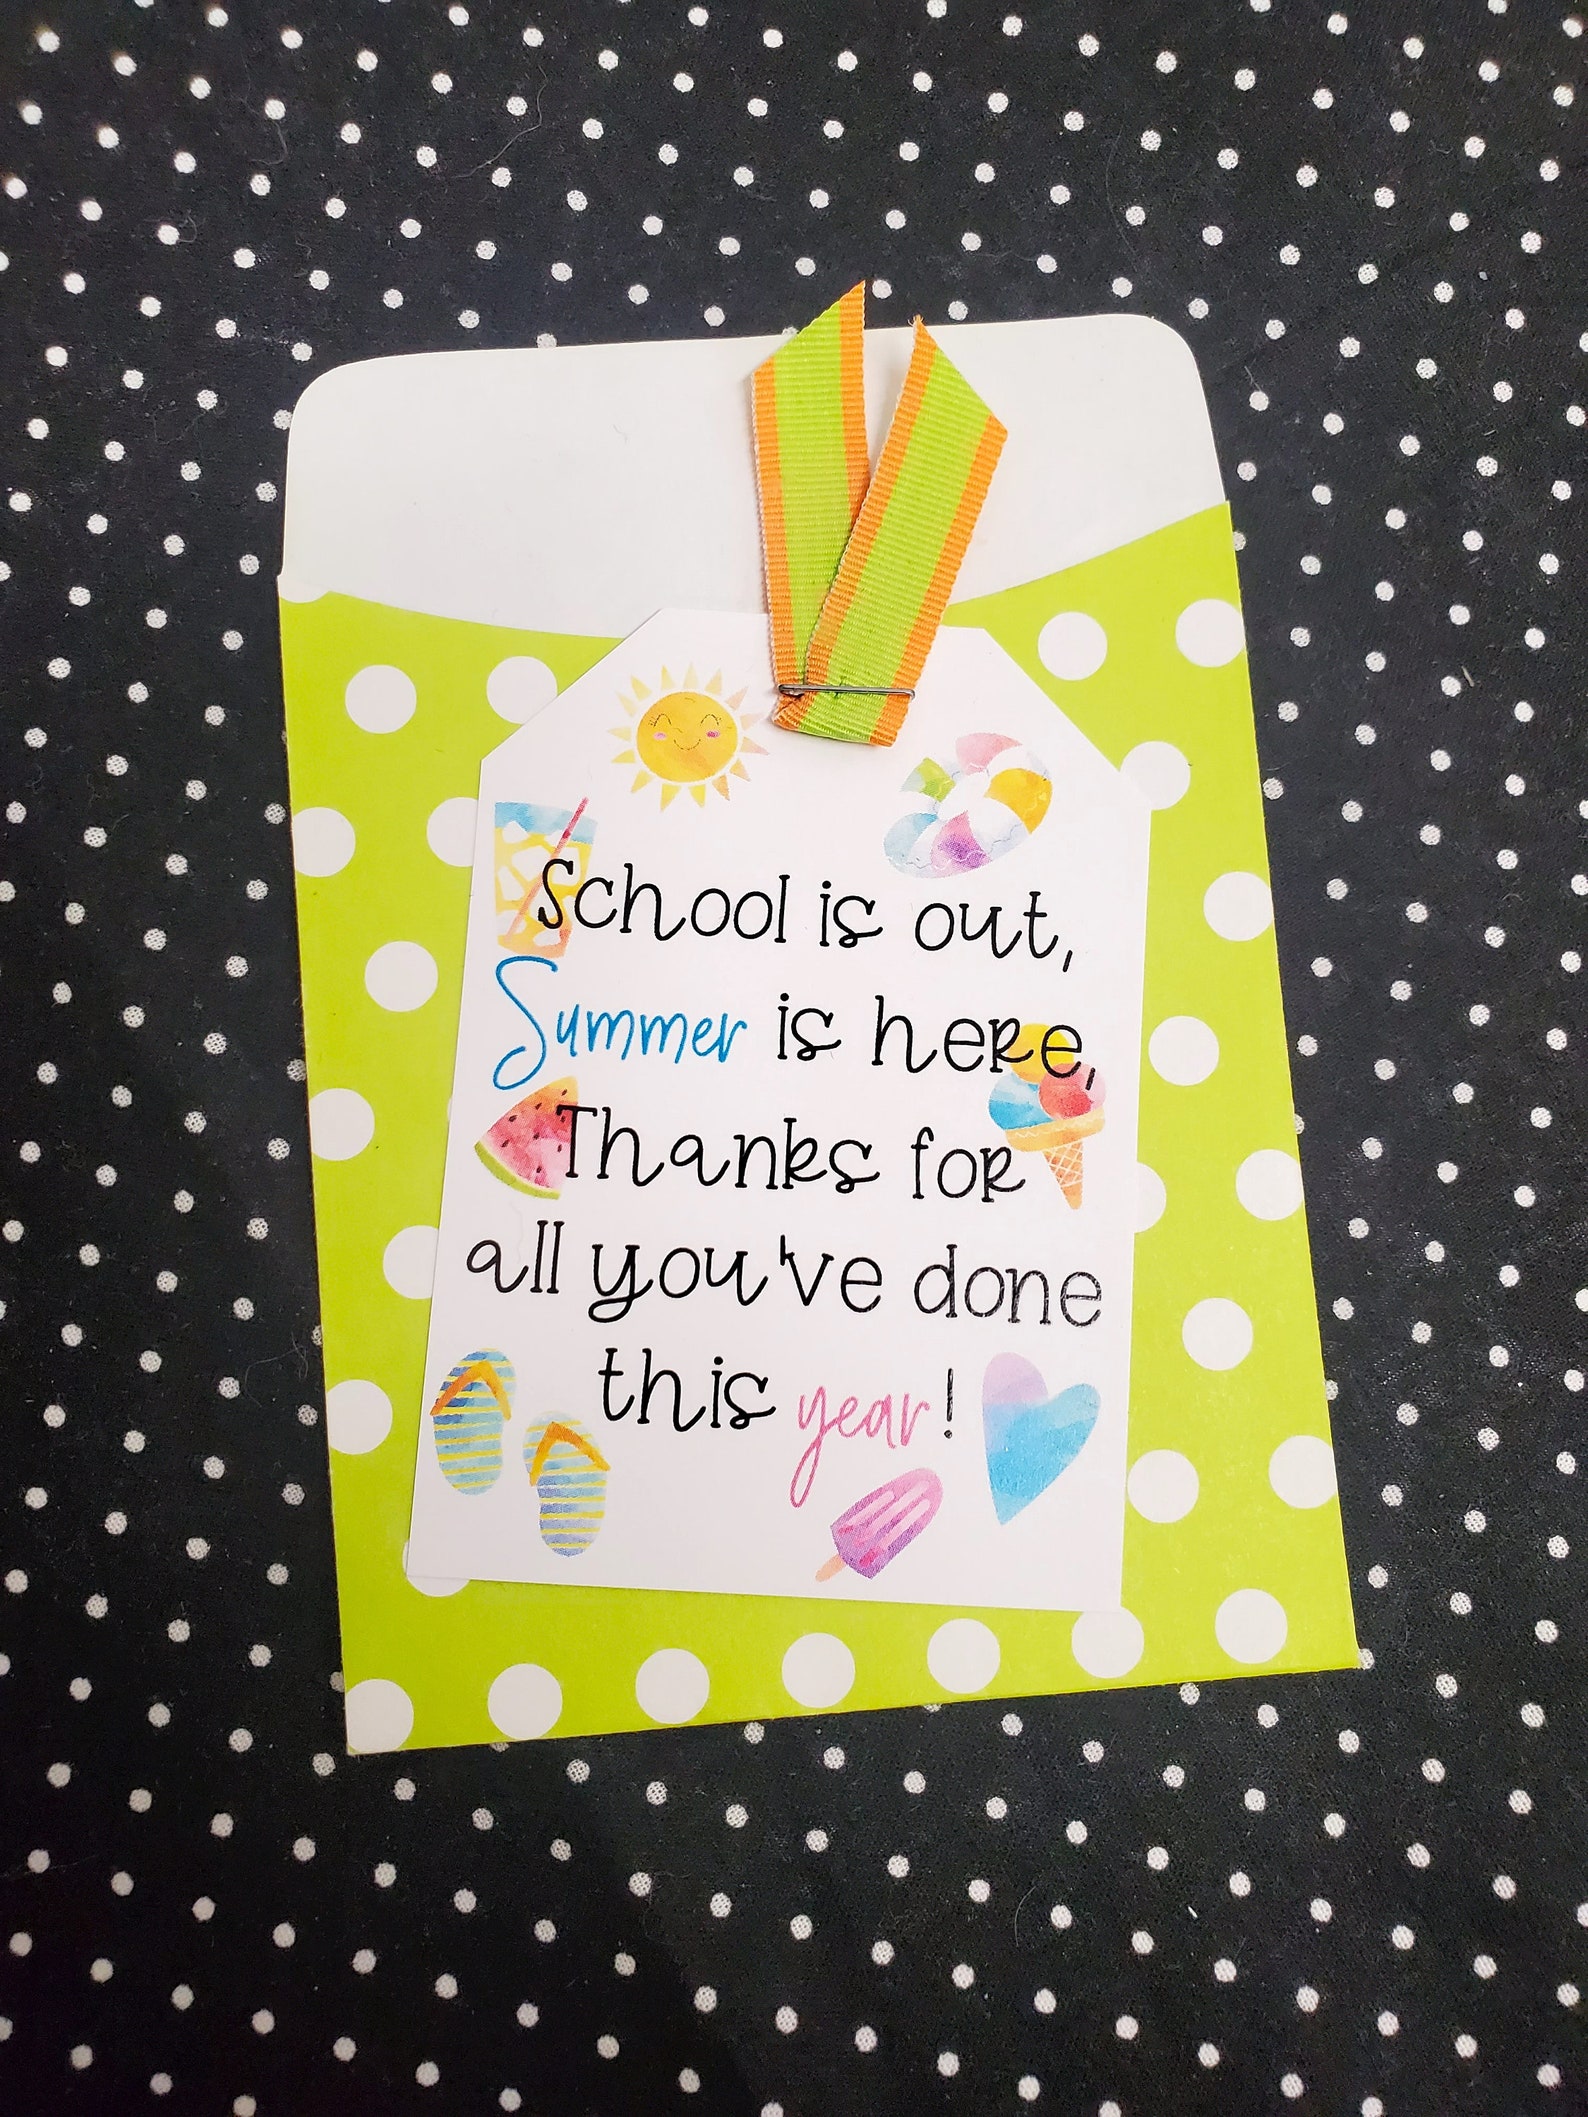 School is out,
Summer is here,
Thanks for
all you've done
this year!